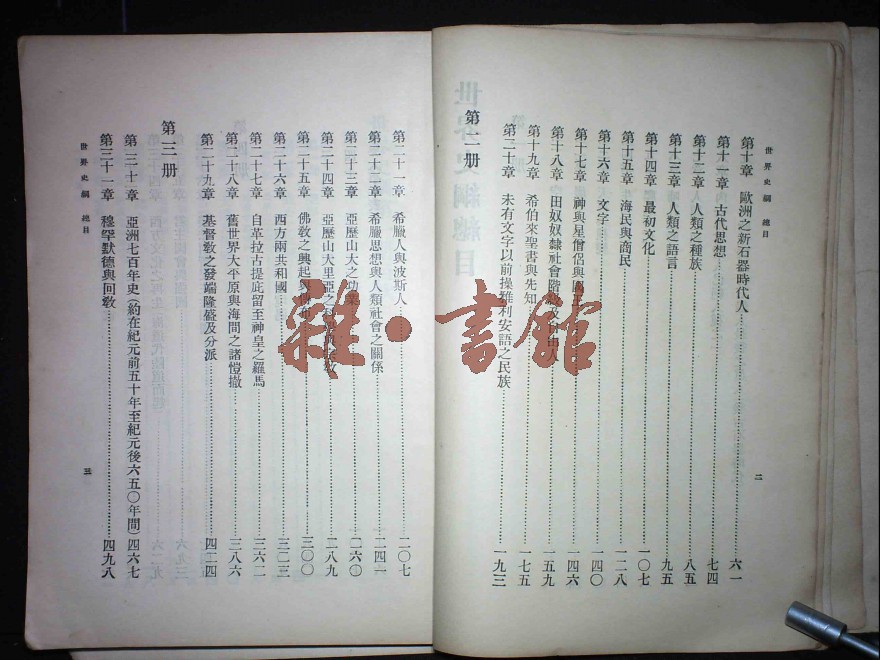 世界史綱 總目
第十章 歐洲之新石器時代人 六一
第十一章 古代思想 七四
第十二章 人類之種族 八五
第十三章 人類之語言 九五
第十四章 最初文化 一〇七
第十五章 海民與商民 一二八
第十六章 文字 一四〇
第十七章 神與星僧侶與國王 一四六
第十八章 田奴奴隸社會階級及自由人 一五九
第十九章 希伯來聖書與先知 一七五
第二十章 未有文字以前操雅利安語之民族 一九三
第二冊
二
第二十一章 希臘人與波斯人 二〇七
第二十二章 希臘思想與人類社會之關係 二四一
第二十三章 亞歷山大之功業 二六〇
第二十四章 亞歷山大里亞之科 二八九
第二十五章 佛教之興起與 三〇〇
第二十六章 西方兩共和國 三二三
第二十七章 自革拉古提庇留至神皇之羅馬 三六二
第二十八章 舊世界大平原與海間之諸愷撤 三八六
第二十九章 基督敎之發端隆盛及分派 四二四
第三冊
第三十章 亞洲七百年史(約在紀元前五十年至紀元後六五〇年間) 四六七
第三十一章 穆罕默德與回敎 四九八
世界史綱 總目
三
雜·書館